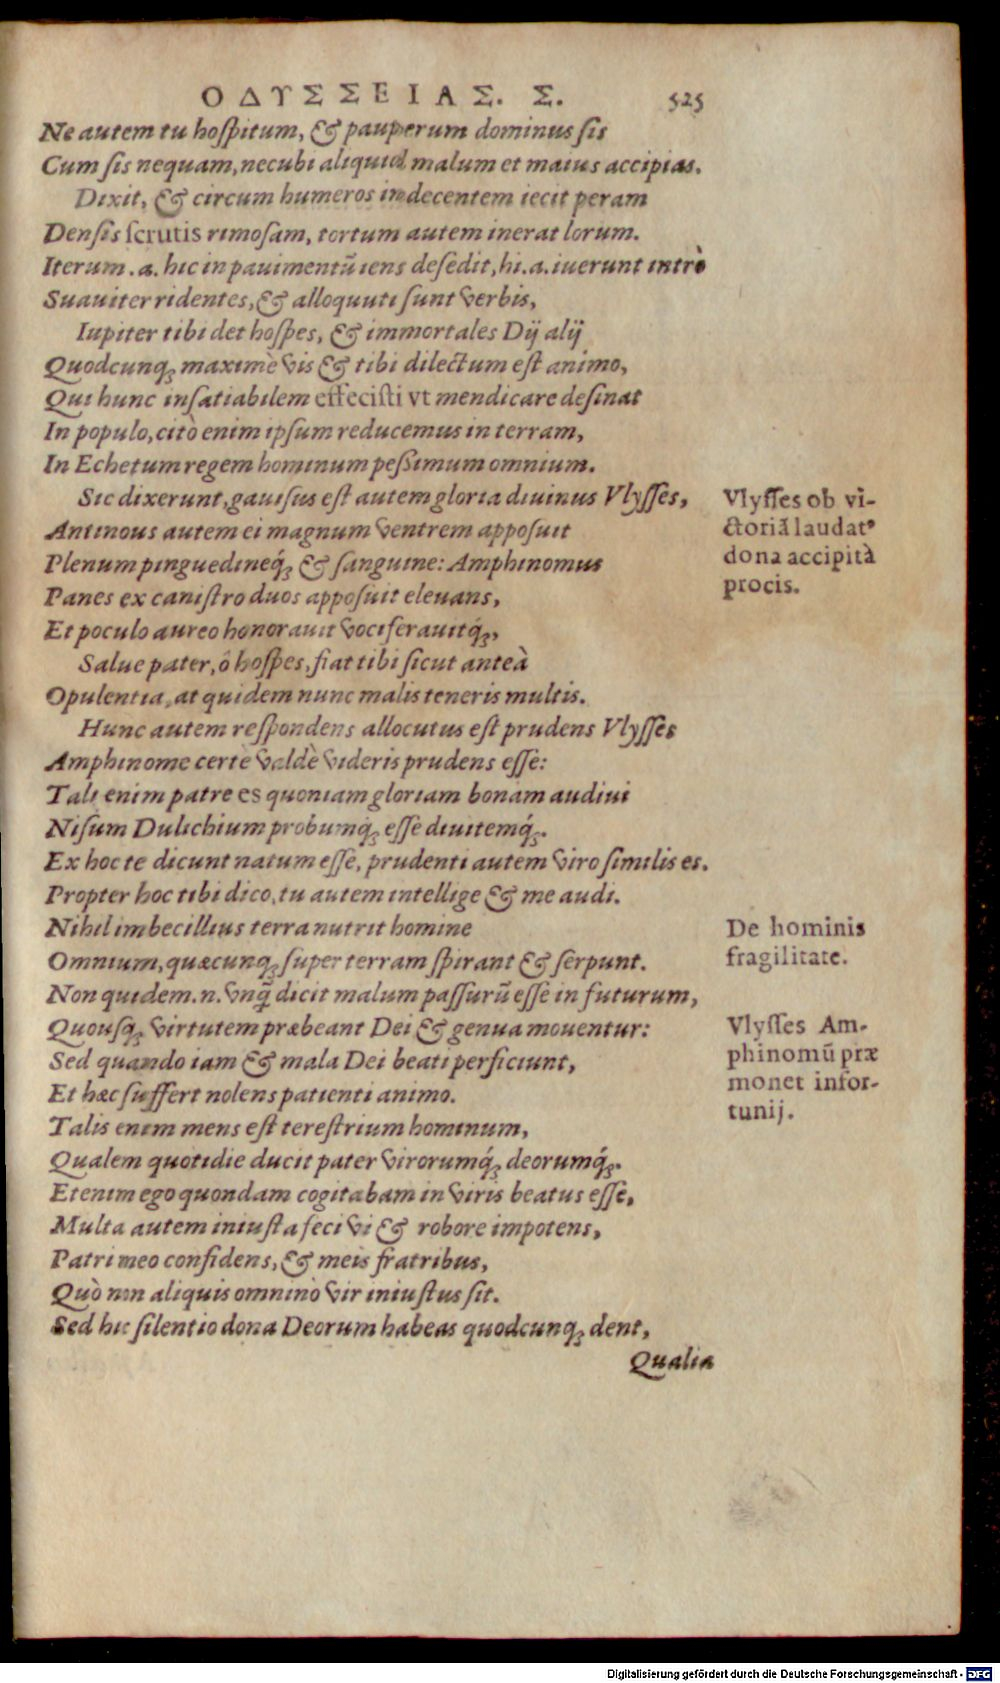 ΟΔΥΣΣΕΙΑΣ. Σ. 525
Ne autem tu hospitum, & pauperum dominus sis
Cum sis nequam, necubi aliquid malum et maius accipias.
Dixit, & circum humeros indecentem iecit peram
Densis scrutis rimosam, tortum autem inerat lorum.
Iterum .a. hic in pauimentū iens desedit, hi .a. iuerunt intrò
Suauiter ridentes, & alloquuti sunt verbis,
Iupiter tibi det hospes, & immortales Dij alij
Quodcunq; maximè vis & tibi dilectum est animo,
Qui hunc insatiabilem effecisti vt mendicare desinat
In populo, citò enim ipsum reducemus in terram,
In Echetum regem hominum pessimum omnium.
Sic dixerunt, gauisus est autem gloria diuinus Vlysses,
Antinous autem ei magnum ventrem apposuit
Plenum pinguedineq́; & sanguine: Amphinomus
Panes ex canistro duos apposuit eleuans,
Et poculo aureo honorauit vociferauitq́;,
Salue pater, ô hospes, fiat tibi sicut anteà
Opulentia, at quidem nunc malis teneris multis.
Hunc autem respondens allocutus est prudens Vlysses
Amphinome certè valdè videris prudens esse:
Tali enim patre es quoniam gloriam bonam audiui
Nisum Dulichium probumq́; esse diuitemq́;.
Ex hoc te dicunt natum esse, prudenti autem viro similis es.
Propter hoc tibi dico, tu autem intellige & me audi.
Nihil imbecillius terra nutrit homine
Omnium, quæcunq; super terram spirant & serpunt.
Non quidem .n. vnq̄ dicit malum passurū esse in futurum,
Quousq; virtutem præbeant Dei & genua mouentur:
Sed quando iam & mala Dei beati perficiunt,
Et hæc suffert nolens patienti animo.
Talis enim mens est terestrium hominum,
Qualem quotidie ducit pater virorumq́; deorumq́;.
Etenim ego quondam cogitabam in viris beatus esse,
Multa autem iniusta feci vi & robore impotens,
Patri meo confidens, & meis fratribus,
Quò non aliquis omninò vir iniustus sit.
Sed hic silentio dona Deorum habeas quodcunq; dent,
Qualia
Vlysses ob vi-
ctoriā laudatꝰ
dona accipit à
procis.
De hominis
fragilitate.
Vlysses Am-
phinomū præ
monet infor-
tunij.
Digitalisierung gefördert durch die Deutsche Forschungsgemeinschaft - DFG